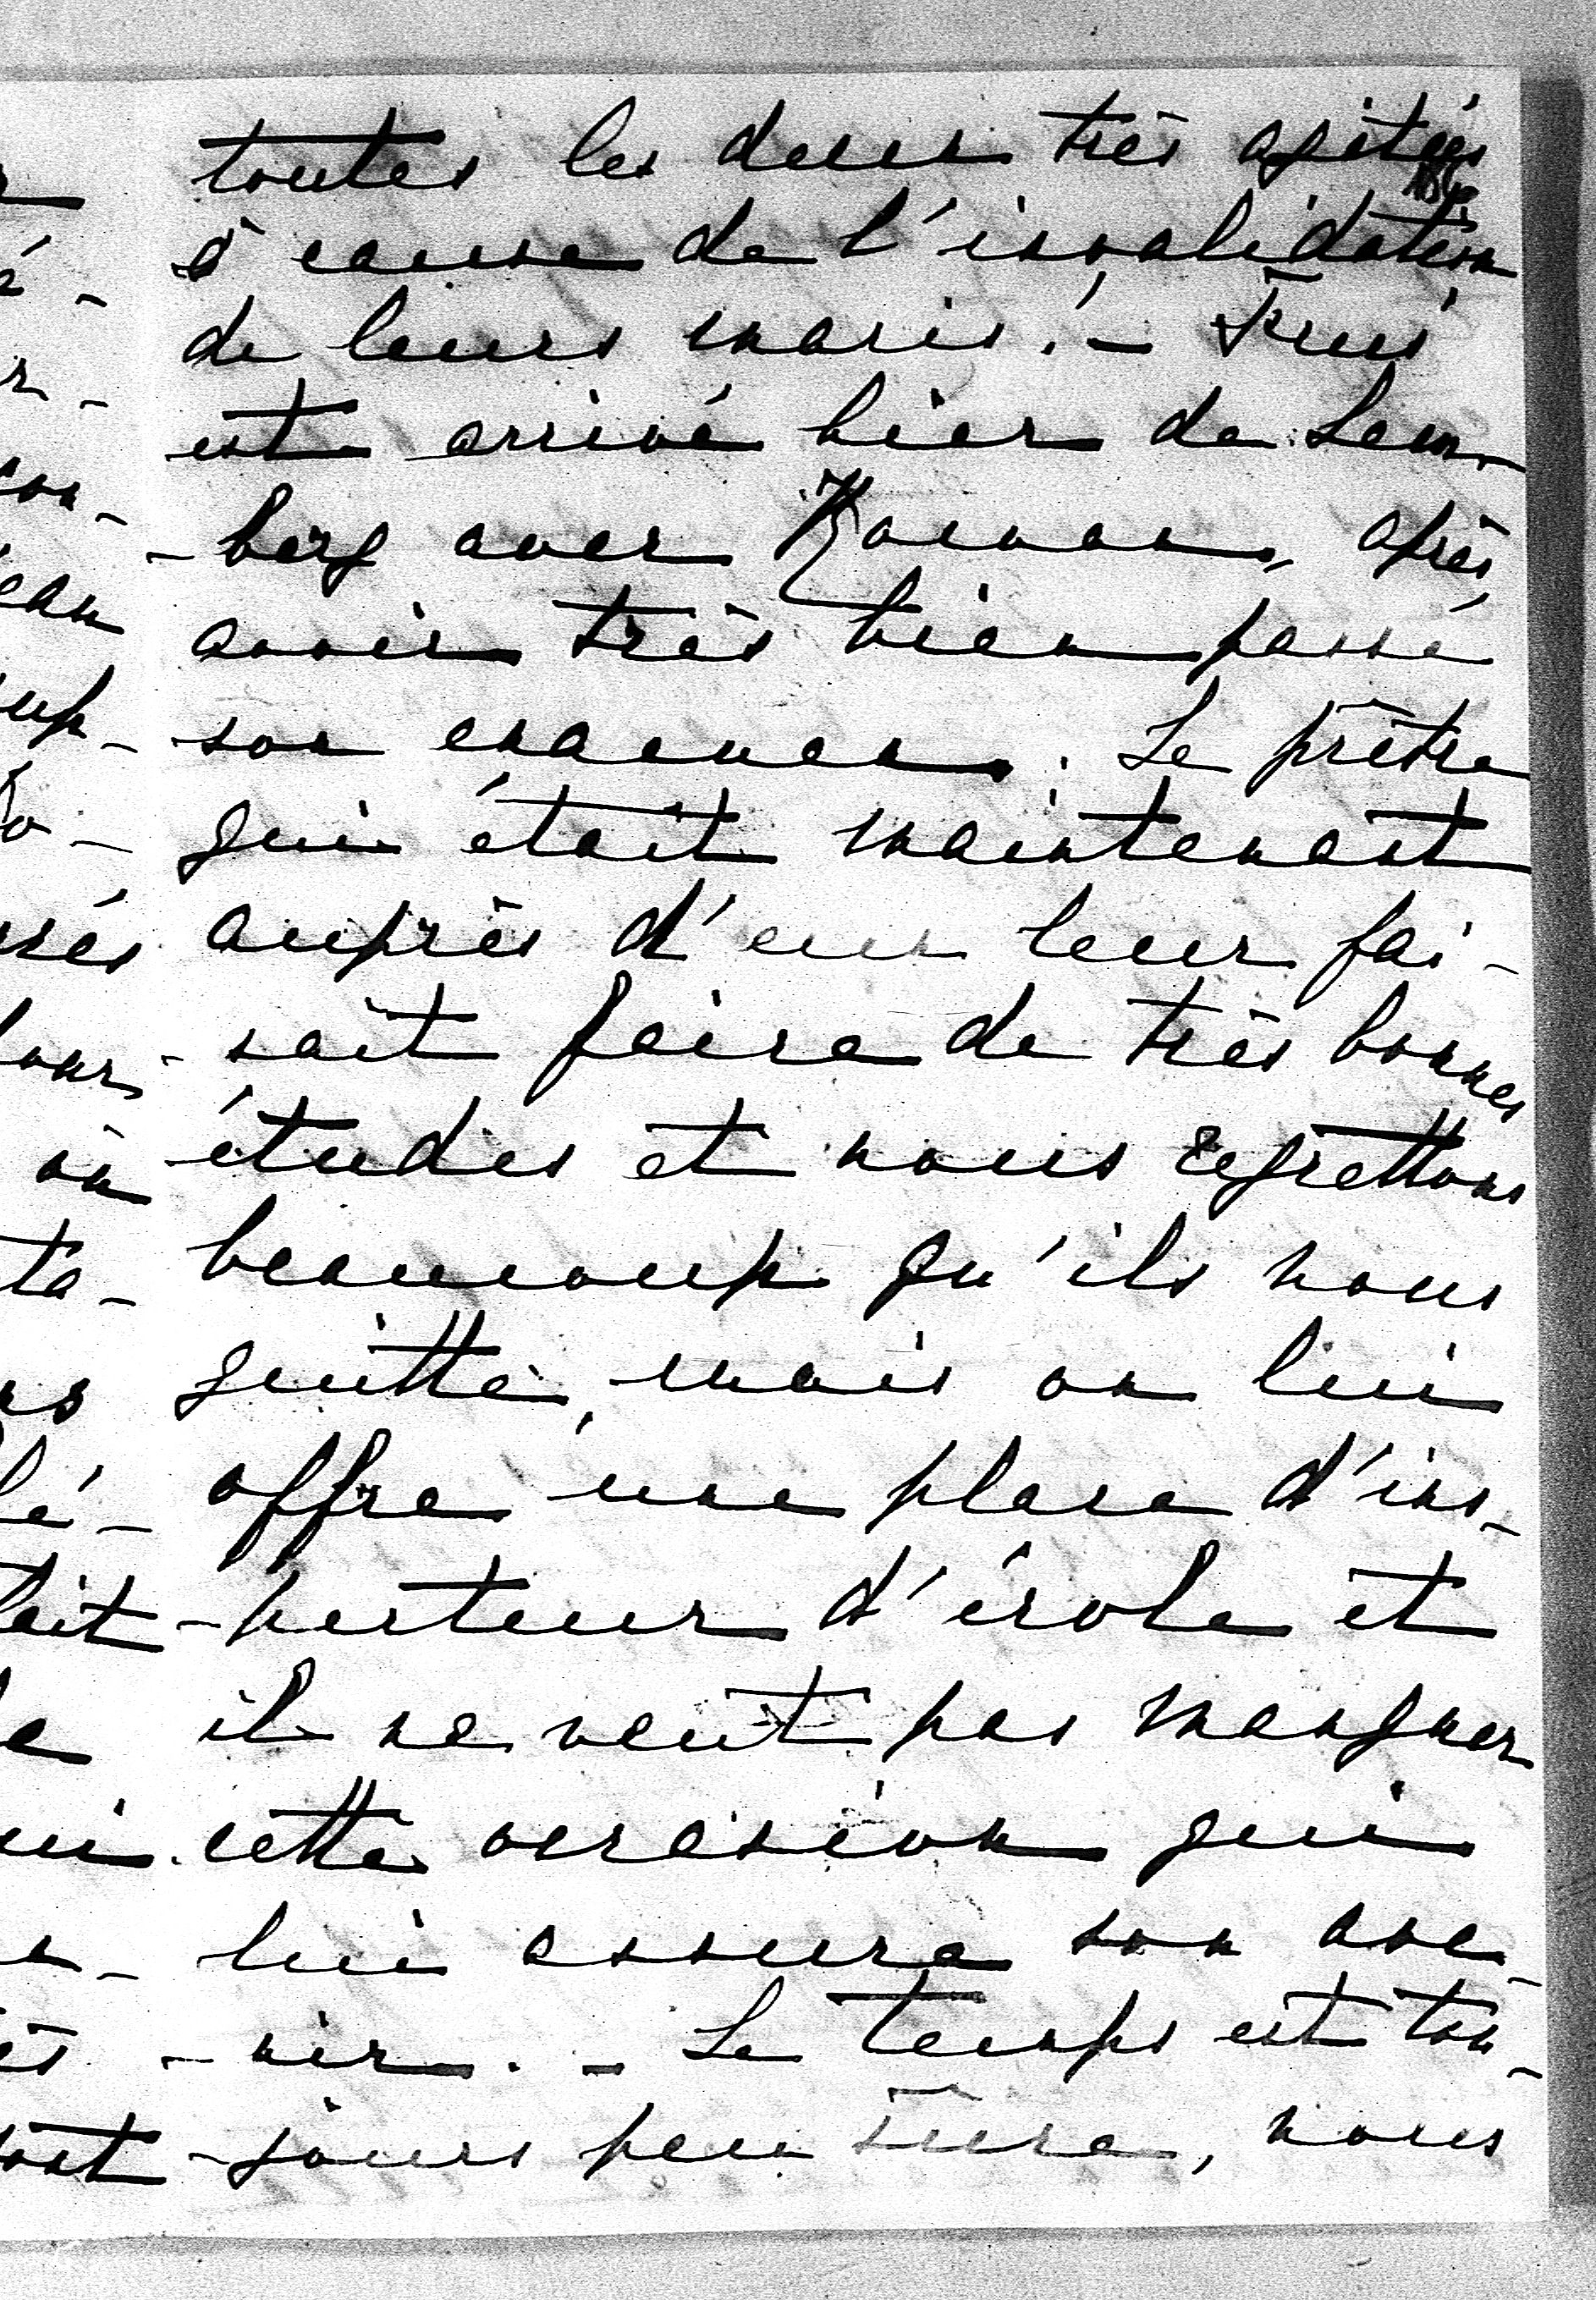 toutes les deux très agitées
à cause de l'invalidation
de leurs maris. –
est arrivé hier de Lem-
-berg avec Roman, après
avoir très bien passé
son examen. Le prêtre
qui était maintenant
auprès d'eux leur fai-
-sait faire de très bonnes
études et nous regrettons
beaucoup qu'ils nous
quitte, mais on lui
offre une place d'ins-
-pecteur d'école et
il ne veut pas manquer
cette occasion qui
lui assure son ave-
-nir. – Le temps est tou-
-jours peu sûre, nous